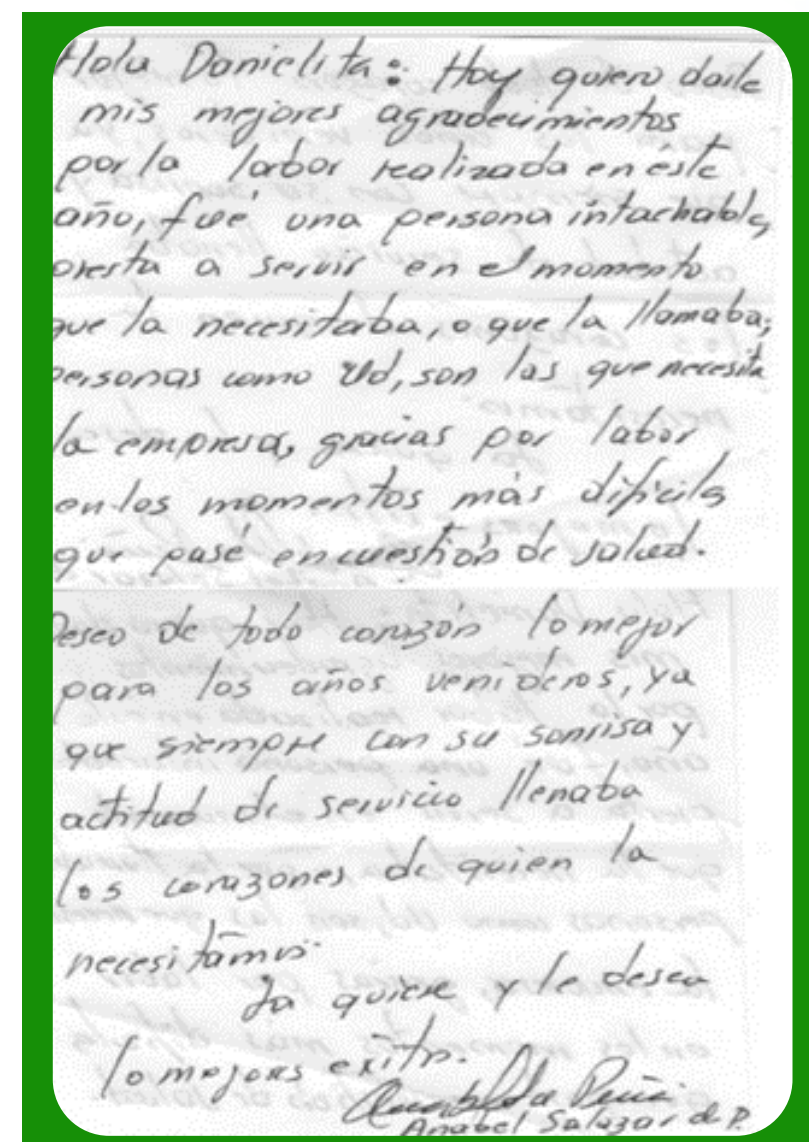 Hola Danielita: Hoy quiero darle
mis mejores agradecimientos
por la labor realizada en éste
año, fué una persona intachable,
presta a servir en el momento
que la necesitaba, o que la llamaba;
personas como Ud, son las que necesita
la empresa, gracias por labor
en los momentos más difíciles
que pasé en cuestión de salud.
Deseo de todo corazón lo mejor
para los años venideros, ya
que siempre con su sonrisa y
actitud de servicio llenaba
los corazones de quien la
necesitamos.
La quiere y le desea
lo mejores exitos.
Anabel Salazar de P.